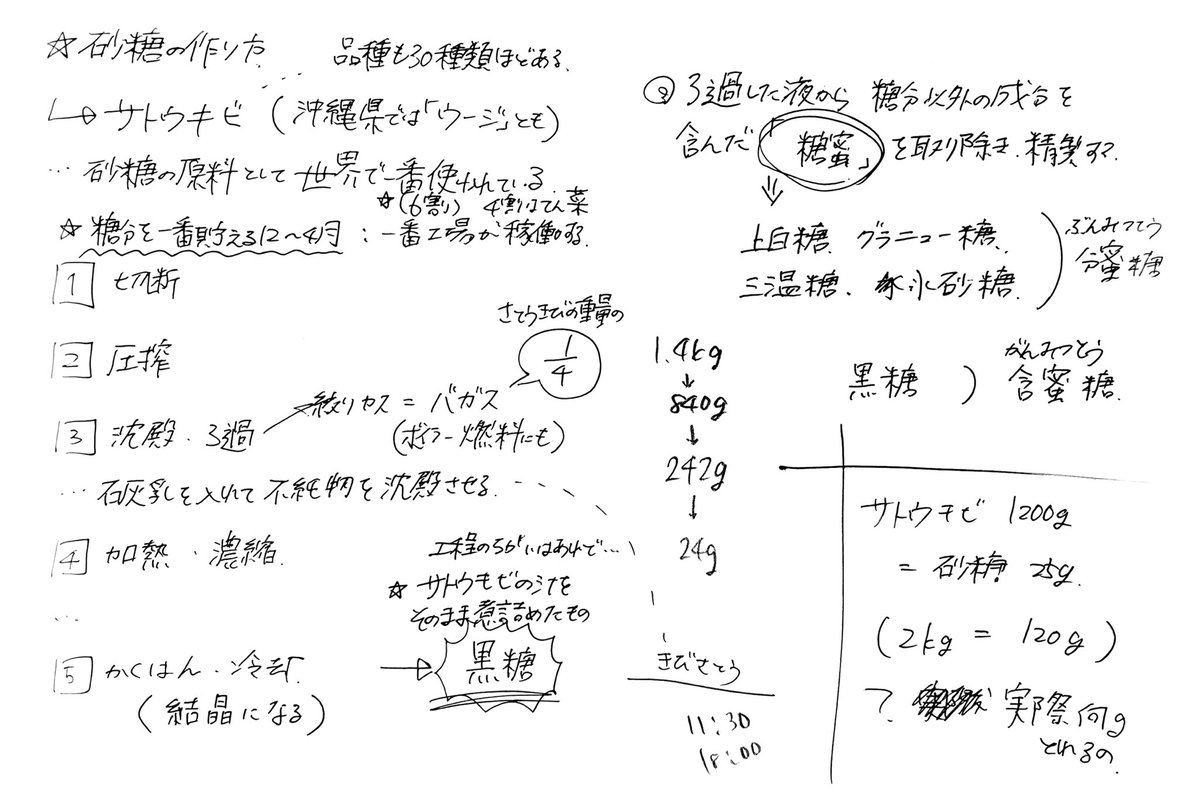 ☆砂糖の作り方
品種も30種類ほどある。
↳サトウキビ (沖縄県では「ウージ」とも)
… 砂糖の原料として世界で一番使われている。
☆(6割) 4割はてん菜
☆ 糖分を一番貯える12〜4月:一番工場が稼働する。
1 切断
2 圧搾
さとうきびの重量の
1/4
3 沈殿・ろ過
絞りカス = バガス
(ボイラー燃料にも)
… 石灰乳を入れて不純物を沈殿させる。…
4 加熱・濃縮
…
工程のちがいはあれで…
☆ サトウキビの汁を
そのまま煮詰めたもの
5 かくはん・冷却
→ 黒糖
(結晶になる)
② ろ過した液から 糖分以外の成分を
含んだ「糖蜜」を取り除き、精製する。
⇓
上白糖、グラニュー糖、
三温糖、氷砂糖。
ぶんみつとう
分蜜糖
黒糖 ) がんみつとう
含蜜糖
1.4kg
↓
840g
↓
242g
↓
24g
きびさとう
11:30
18:00
サトウキビ 1200g
= 砂糖 25g
(2kg = 120g)
?
実際何g
とれるの